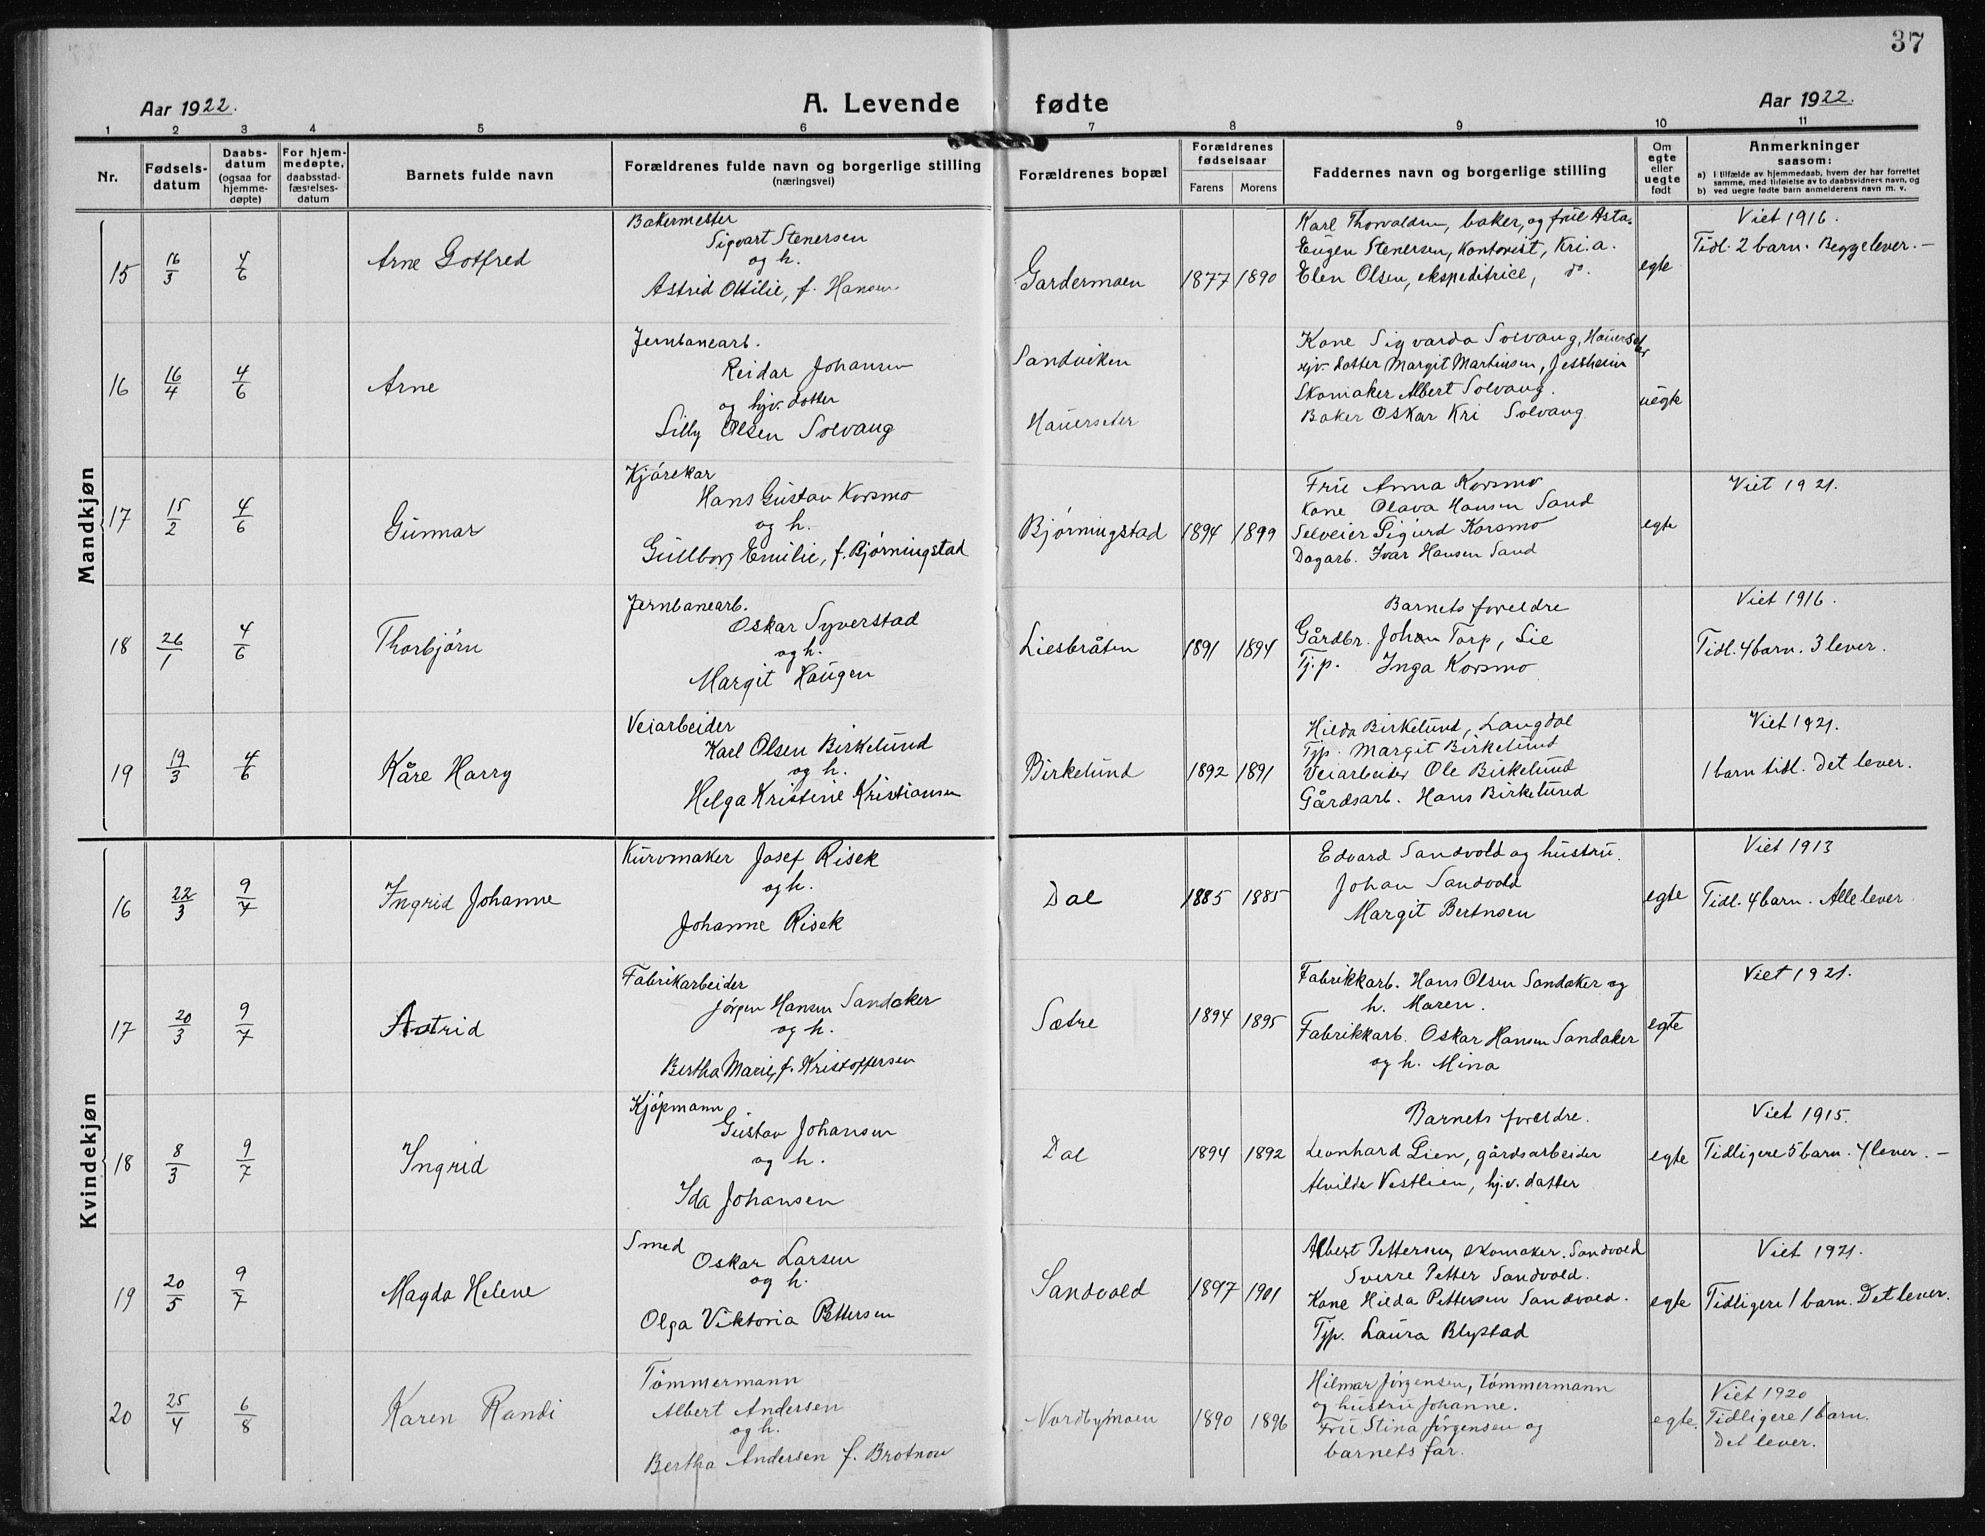 37
Aar 1922. A. Levende fødte Aar 1922.
1 2 3 4 5 6 7 8 9 10 11
Nr. Fødsels-datum Daabs-datum (ogsaa for hjemme-døpte) For hjem-medøpte, daabsstad-fæstelses-datum Barnets fulde navn Forældrenes fulde navn og borgerlige stilling (næringsvei) Forældrenes bopæl Forældrenes fødselsaar Farens Morens Faddernes navn og borgerlige stilling Om egte eller uegte født Anmerkninger saasom: a) I tilfælde av hjemmedaab, hvem der har forrettet samme, med tilføielse av to daabsvidners navn, og b) ved uegte fødte barn anmelderens navn m. v.
Mandkjøn
15 16/3 4/6 Arne Gotfred
Bakermester
Sigvart Stenersen
og h.
Astrid Ottilie, f. Hansen
Gardermoen 1877 1890
Karl Thorvaldsen, baker, og frue Asta.
Eugen Stenersen, Kontorist, Kri.a.
Elen Olsen, ekspeditrice, do.
egte
Viet 1916.
Tidl. 2 barn. Begge lever. –
16 16/4 4/6 Arne
Jernbanearb.
Reidar Johansen
og hjv. dotter
Lilly Olsen Solvang
Sandviken
Hauerseter
Kone Sigvarda Solvang, Hauerseter
hjv. dotter Margit Martinsen, Jessheim
Skomaker Albert Solvang.
Baker Oskar Kri Solvang
uegte
17 15/2 4/6 Gunnar
Kjørekar
Hans Gustav Korsmo
og h.
Gullborg Emilie, f. Bjørningstad
Bjørningstad 1894 1899
Frue Anna Korsmo
Kone Olava Hansen Sand
Selveier Sigurd Korsmo
Dagarb. Ivar Hansen Sand
egte
Viet 1921.
18 26/1 4/6 Thorbjørn
Jernbanearb.
Oskar Syverstad
og h.
Margit Haugen
Liesbråten 1891 1894
Barnets foreldre
Gårdbr. Johan Torp, Lie
Tj.p. Inga Korsmo
Viet 1916.
Tidl. 4 barn. 3 lever.
19 19/3 4/6 Kåre Harry
Veiarbeider
Karl Olsen Birkelund
og h.
Helga Kristine Kristiansen
Birkelund 1892 1891
Hilda Birkelund, Langdal
Tjp. Margit Birkelund
Veiarbeider Ole Birkelund
Gårdsarb. Hans Birkelund
Viet 1921.
1 barn tidl. Det lever.
Kvindekjøn
16 22/3 9/7 Ingrid Johanne
Kurvmaker Josef Risek
og h.
Johanne Risek
Dal 1885 1885
Edvard Sandvold og hustru.
Johan Sandvold
Margit Berntsen
egte
Viet 1913
Tidl. 4 barn. Alle lever.
17 20/3 9/7 Astrid
Fabrikarbeider
Jørgen Hansen Sandaker
og h.
Bertha Marie, f. Kristoffersen
Sætre 1894 1895
Fabrikkarb. Hans Olsen Sandaker og
h. Maren.
Fabrikkarb. Oskar Hansen Sandaker
og h. Mina
egte
Viet 1921.
18 8/3 9/7 Ingrid
Kjøpmann
Gustav Johansen
og h.
Ida Johansen
Dal 1894 1892
Barnets foreldre.
Leonhard Lien, gårdsarbeider
Alvilde Vestlien, hj.v. datter
egte
Viet 1915.
Tidligere 5 barn. 4 lever. –
19 20/5 9/7 Magda Helene
Smed
Oskar Larsen
og h.
Olga Viktoria Pettersen
Sandvold 1897 1901
Albert Pettersen, skomaker. Sandvold
Sverre Petter Sandvold.
Kone Hilda Pettersen Sandvold.
Tjp. Laura Blystad
egte
Viet 1921.
Tidligere 1 barn. Det lever.
20 25/4 6/8 Karen Randi
Tømmermann
Albert Andersen
og h.
Bertha Andersen f. Brotnow
Nordbymoen 1890 1896
Hilmar Jørgensen, tømmermann
og hustru Johanne.
Fru Stina Jørgensen og
barnets far.
egte.
Viet 1920
Tidligere 1 barn.
Det lever.